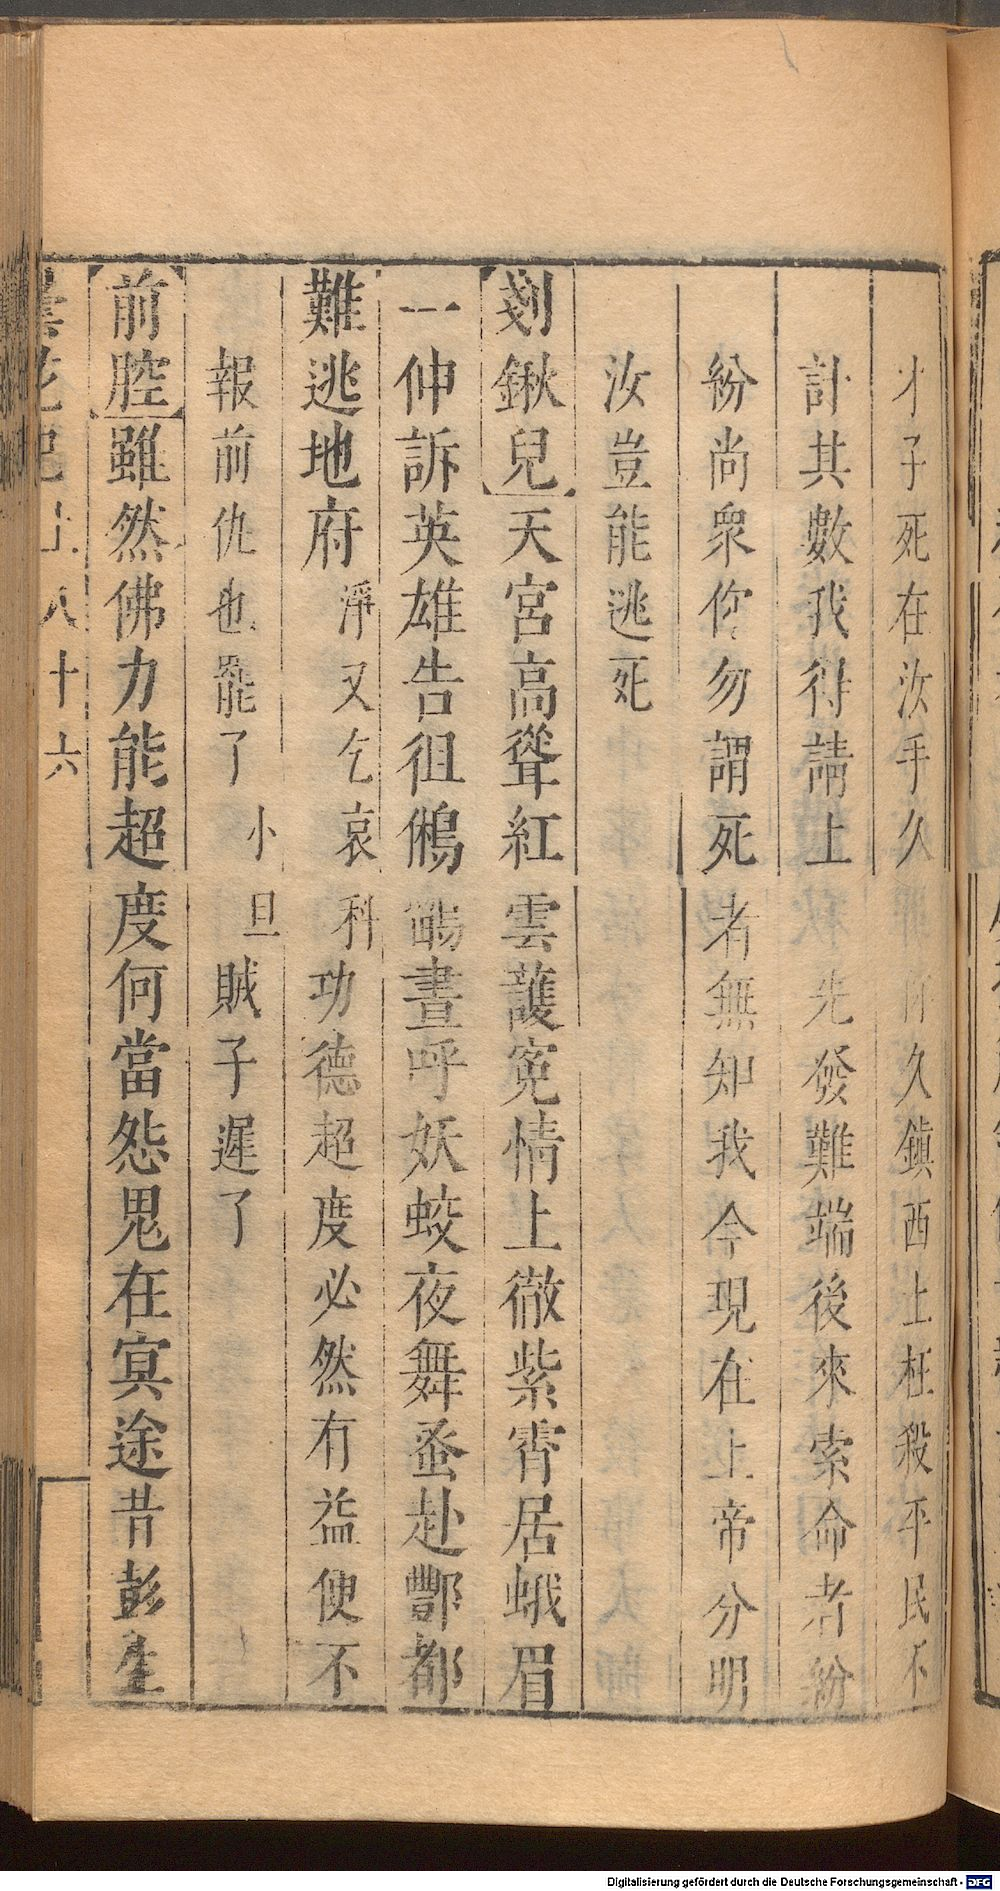 才子死在汝手久　久鎮西上枉殺平民不
計其數我待請上　先發難端後來索命者紛
紛尚衆你勿謂死者無知我今現在上帝分明
汝豈能逃死
剗鍬兒天宮高聳紅雲護寃情上徹紫霄居蛾眉
一伸訴英雄告徂　鷊晝呼妖蛟夜舞蚤赴酆都
難逃地府淨又乞哀科功德超度必然有益便不
報前仇也罷了小旦賊子遲了
前腔雖然佛力能超度何當怨鬼在寘途昔彭生
曇花記　八十六
Digitalisierung gefördert durch die Deutsche Forschungsgemeinschaft - DFG